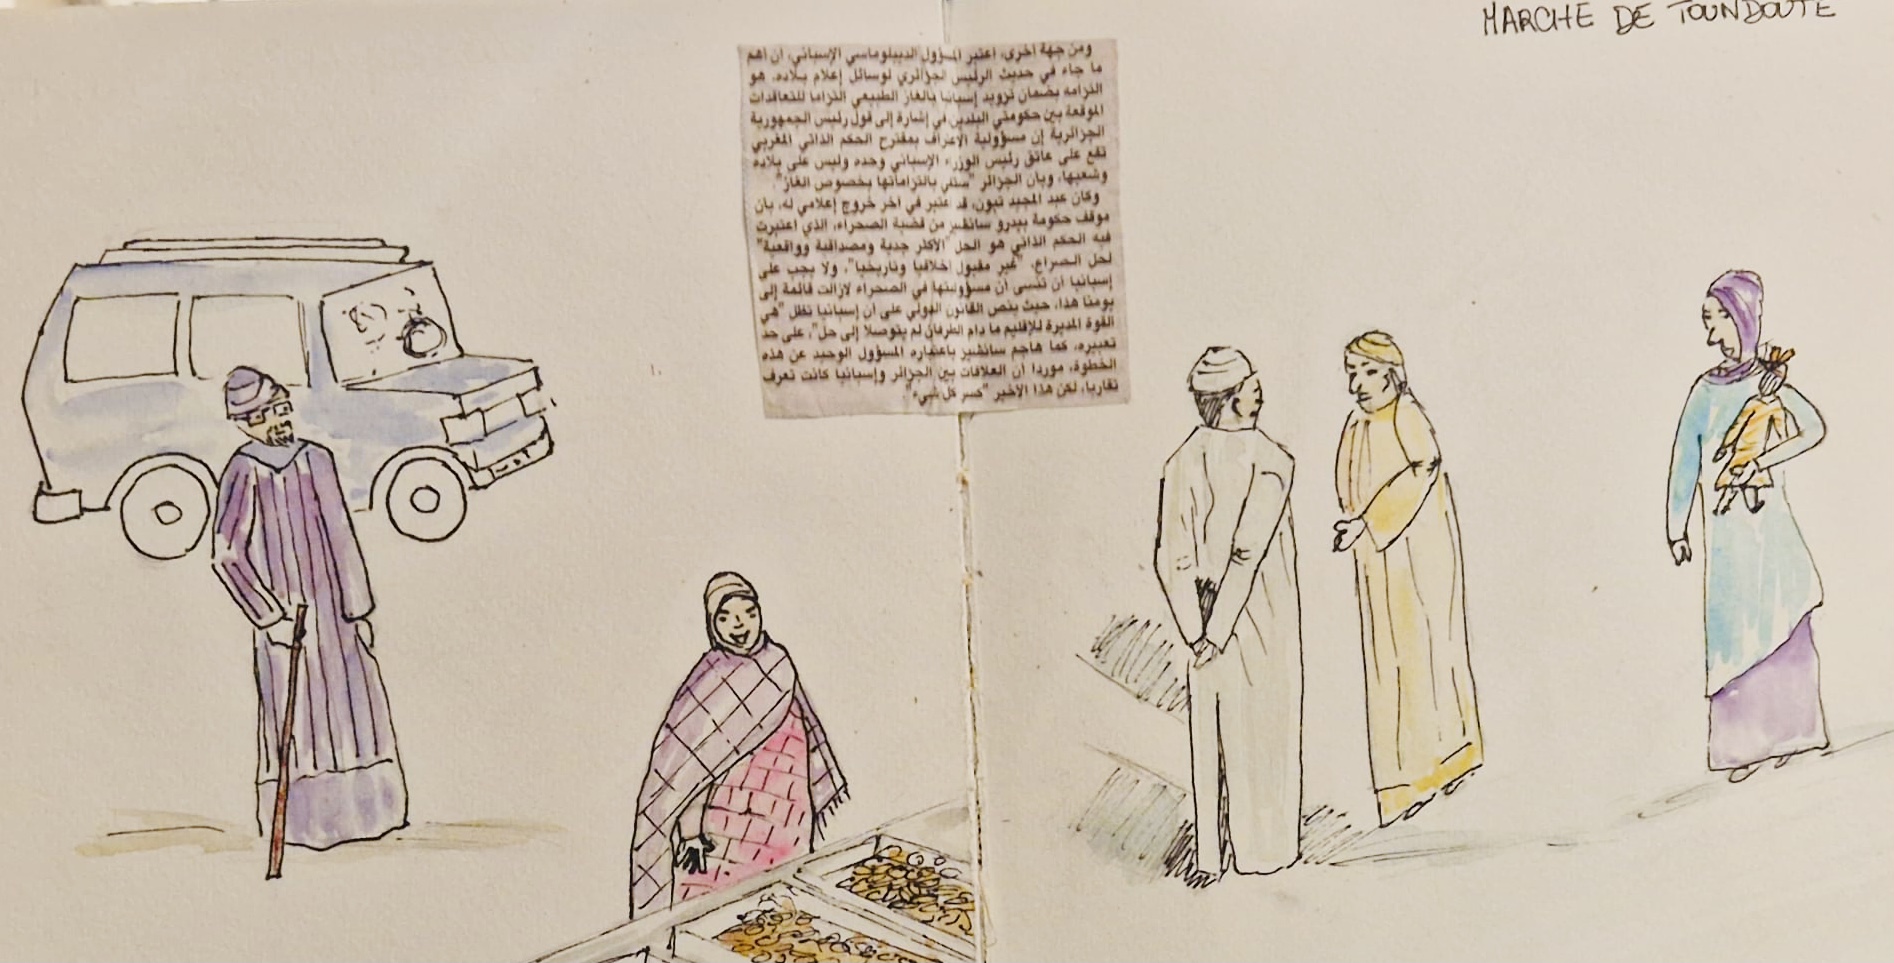 MARCHE DE TOUNDOUTE
ومن جهة أخرى، اعتبر المسؤول الديبلوماسي الإسباني، أن أهم
ما جاء في حديث الرئيس الجزائري لوسائل إعلام بلاده، هو
التزامه بضمان تزويد إسبانيا بالغاز الطبيعي التزاما للتعاقدات
الموقعة بين حكومتي البلدين في إشارة إلى قول رئيس الجمهورية
الجزائرية إن مسؤولية الاعتراف بمقترح الحكم الذاتي المغربي
تقع على عاتق رئيس الوزراء الإسباني وحده وليس على بلاده
وشعبها، وبأن الجزائر "ستفي بالتزاماتها بخصوص الغاز".
وكان عبد المجيد تبون، قد اعتبر في آخر خروج إعلامي له، بأن
موقف حكومة بيدرو سانشيز من قضية الصحراء، الذي اعتبرت
فيه الحكم الذاتي هو الحل "الأكثر جدية ومصداقية وواقعية"
لحل الصراع، "غير مقبول أخلاقيا وتاريخيا"، ولا يجب على
إسبانيا أن تنسى أن مسؤوليتها في الصحراء لازالت قائمة إلى
يومنا هذا، حيث ينص القانون الدولي على أن إسبانيا تظل "هي
القوة المديرة للإقليم ما دام الطرفان لم يتوصلا إلى حل"، على حد
تعبيره، كما هاجم سانشيز باعتباره المسؤول الوحيد عن هذه
الخطوة، موردا أن العلاقات بين الجزائر وإسبانيا كانت تعرف
تقاربا، لكن هذا الأخير "كسر كل شيء".